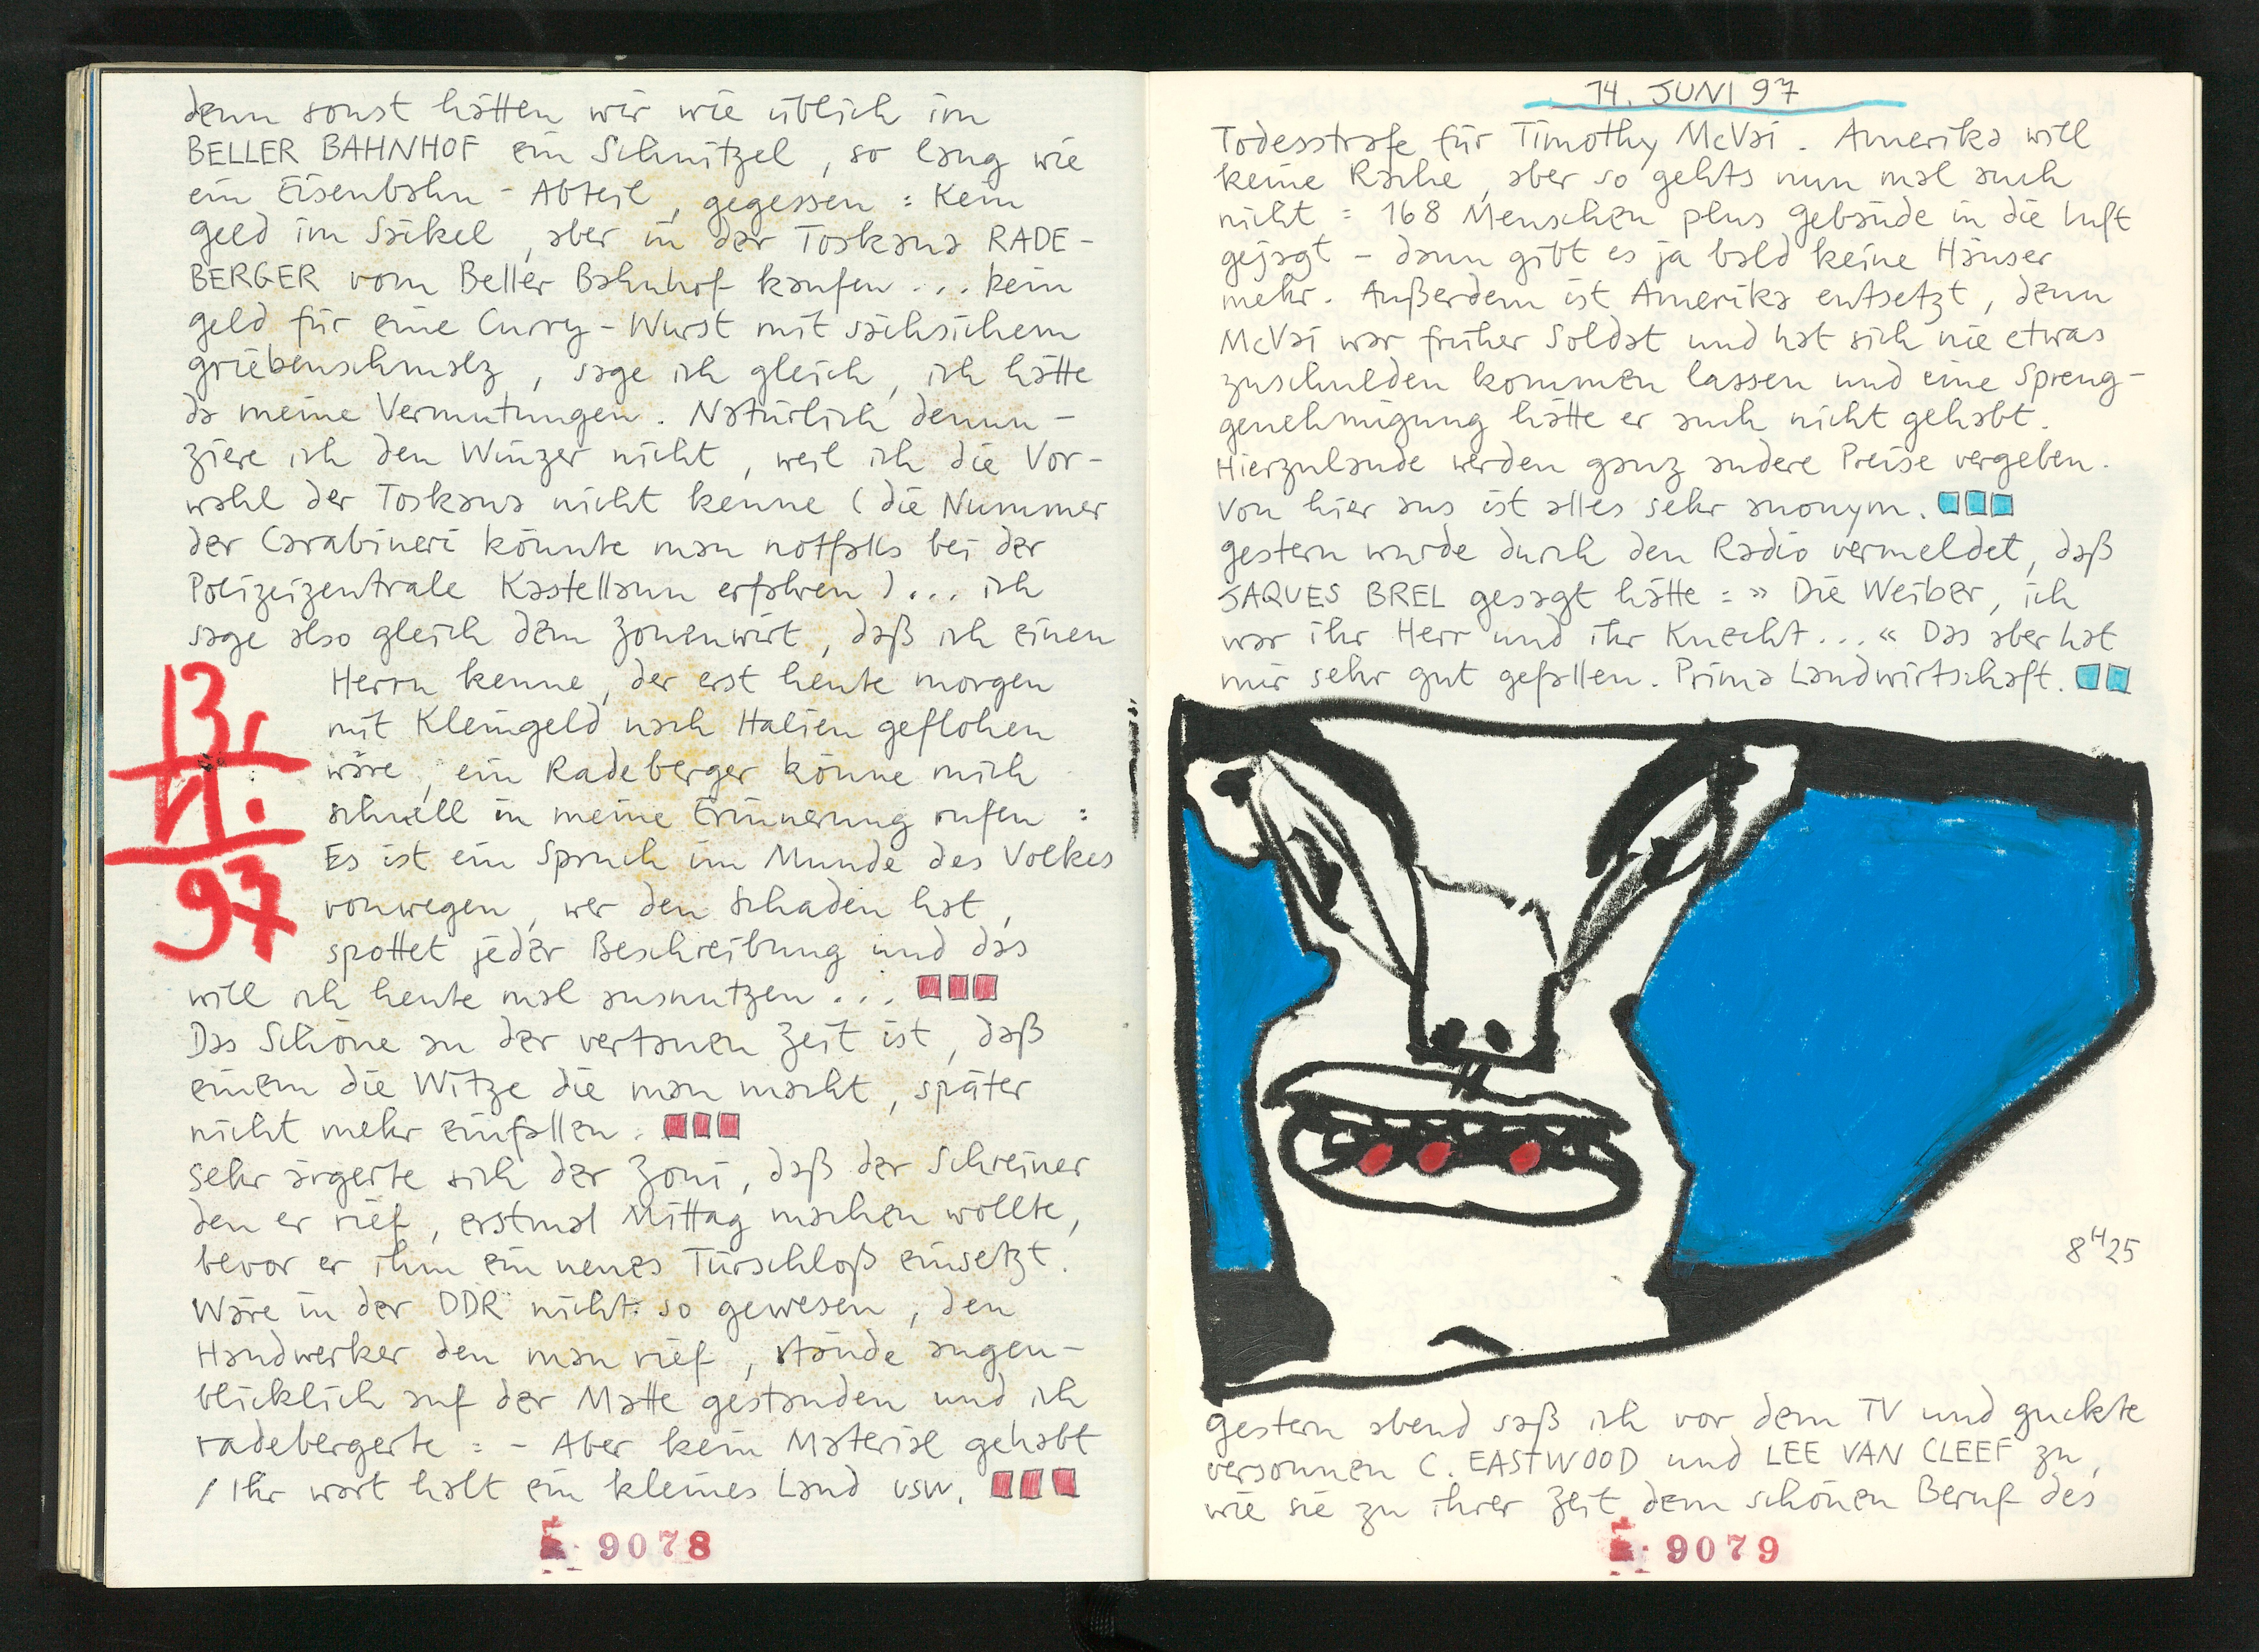 denn sonst hätten wir wie üblich im
BELLER BAHNHOF ein Schnitzel, so lang wie
ein Eisenbahn-Abteil, gegessen: Kein
geld im Säckel, aber in der Toskana RADE-
BERGER vom Beller Bahnhof kaufen... kein
geld für eine Curry-Wurst mit sächsichem
griebenschmalz, sage ich gleich, ich hätte
da meine Vermutungen. Natürlich denun-
ziere ich den Winzer nicht, weil ich die Vor-
wahl der Toskana nicht kenne (die Nummer
der Carabineri könnte man notfalls bei der
Polizeizentrale Kastellaun erfahren)... ich
sage also gleich dem Zonenwirt, daß ich einen
Herrn kenne, der erst heute morgen
mit Kleingeld nach Italien geflohen
wäre, ein Radeberger könne mich
schnell in meine Erinnerung rufen:
Es ist ein Spruch im Munde des Volkes
vonwegen, wer den Schaden hat,
spottet jeder Beschreibung und das
will ich heute mal ausnutzen...
13.
97
Das Schöne an der vertanen Zeit ist, daß
einem die Witze die man macht, später
nicht mehr einfallen.
Sehr ärgerte sich der Zoni, daß der Schreiner
den er rief, erstmal Mittag machen wollte,
bevor er ihm ein neues Türschloß einsetzt.
Wäre in der DDR nicht so gewesen, den
Handwerker den man rief, stände augen-
blicklich auf der Matte gestanden und ich
radebergerte: - Aber kein Material gehabt
/ Ihr wart halt ein kleines Land usw.
9078
14. JUNI 97
Todesstrafe für Timothy McVai. Amerika will
keine Rache, aber so gehts nun mal auch
nicht: 168 Menschen plus gebäude in die Luft
gejagt - dann gibt es ja bald keine Häuser
mehr. Außerdem ist Amerika entsetzt, denn
McVai war früher Soldat und hat sich nie etwas
zuschulden kommen lassen und eine Spreng-
genehmigung hätte er auch nicht gehabt.
Hierzulande werden ganz andere Preise vergeben.
Von hier aus ist alles sehr anonym.
gestern wurde durch den Radio vermeldet, daß
JAQUES BREL gesagt hätte: » Die Weiber, ich
war ihr Herr und ihr Knecht...« Das aber hat
mir sehr gut gefallen. Prima Landwirtschaft.
8H25
gestern abend saß ich vor dem TV und guckte
versonnen C. EASTWOOD und LEE VAN CLEEF zu,
wie sie zu ihrer Zeit dem schönen Beruf des
9079